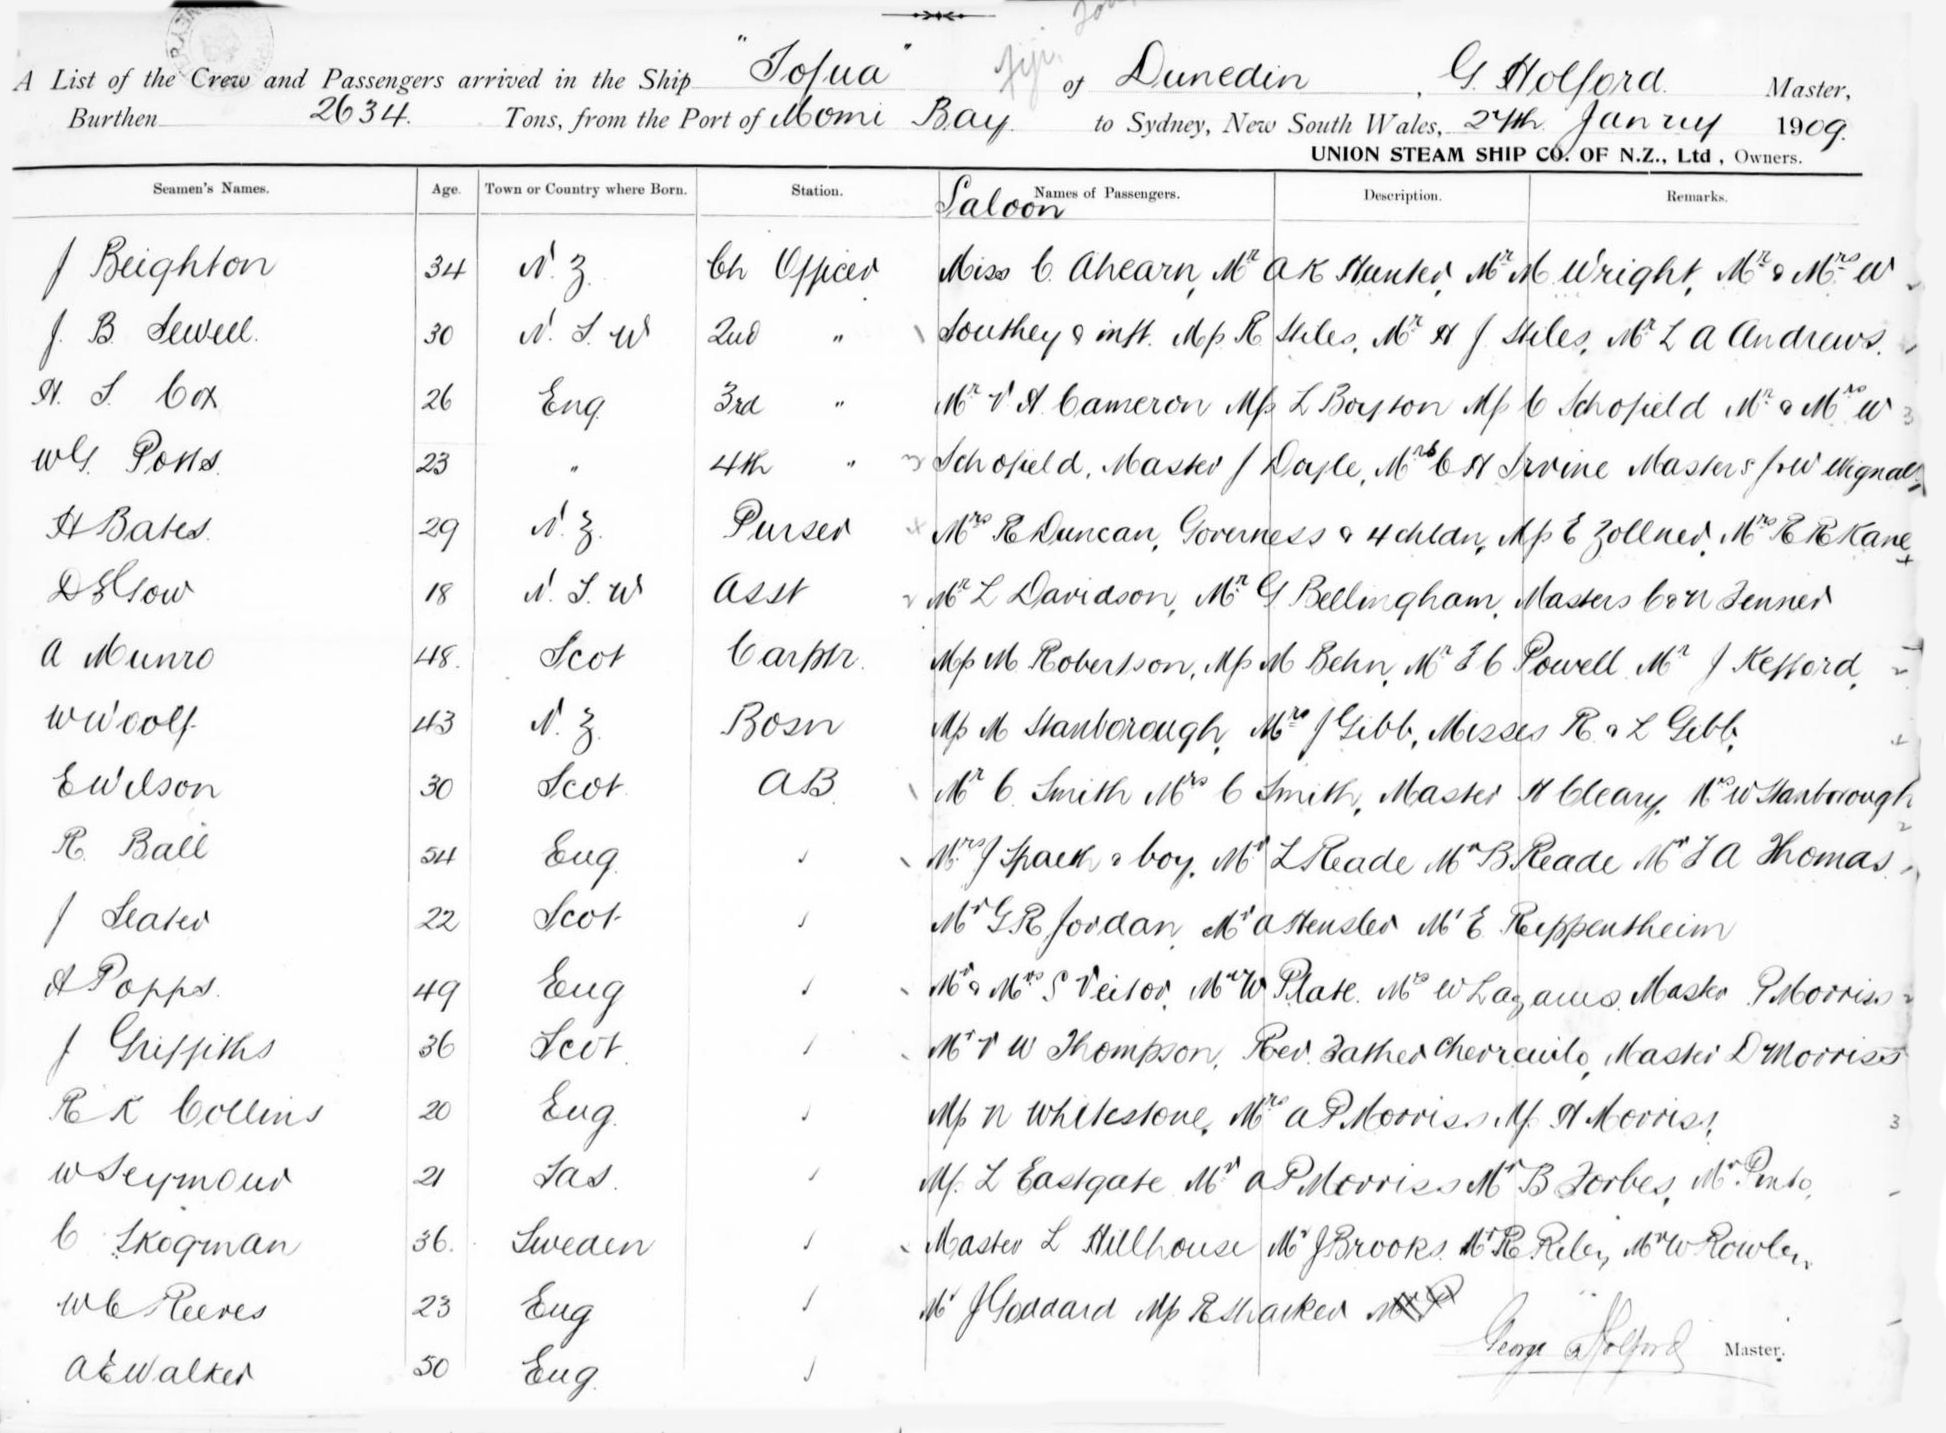 A List of the Crew and Passengers arrived in the Ship "Tofua" Fiji of Dunedin, G. Holford. Master,
Burthen 2634. Tons, from the Port of Momi Bay to Sydney, New South Wales, 27th Janry 1909.
UNION STEAM SHIP CO. OF N.Z., Ltd, Owners.
Seamen's Names. Age. Town or Country where Born. Station. Names of Passengers. Description. Remarks.
Saloon
J Beighton 34 N. Z. Ch Officer Miss C. Ahearn, Mr A K Hunter, Mr M Wright, Mr & Mrs W
J. B. Sewell. 30 N. S. W 2nd " Southey & inft. Mp R Stiles, Mr H J Stiles, Mr L A Andrews.
H. S. Cox 26 Eng 3rd " Mr V A. Cameron Mp L Boyson Mp C Schofield Mr & Mrs W
WG. Potts. 23 " 4th " Schofield, Master J Doyle, Mrs C H Irvine Masters J & W Wignall,
H Bates. 29 N. Z. Purser Mrs R Duncan, Governess & 4 chldn, Mp E Zollner, Mrs R R Kane
18 N. S. W Asst Mr L Davidson, Mr G Bellingham, Masters C & N Fenner
A Munro 48. Scot Carptr. Mp M Robertson, Mp M Behn, Mr F C Powell Mr J Kefford,
W Woolf 43 N. Z. Bosn Mp M Stanborough, Mrs J Gibb, Misses R. & L Gibb,
E Wilson 30 Scot AB. Mr C. Smith Mrs C Smith, Master H Cleary, Mrs W Stanborough
R. Ball 54 Eng Mrs J Spaeth & boy, Mr L Reade Mr B Reade Mr F A Thomas
J Slater 22 Scot Mr G R Jordan, Mr A Hensler Mr E Reppentheim
A Popps. 49 Eng Mr & Mrs S Veitor, Mr W Plate. Mrs W Lazarus. Master P Morriss
J Griffiths 36 Scot. Mr V W Thompson, Rev. Father Master D Morriss
R K Collins 20 Eng. Mp N Whitestone, Mrs A P Morriss Mp H Morriss,
W Seymour 21 Tas. Mp. L Eastgate Mr A P Morriss Mr B Forbes, Mr. Pinto,
C Skogman 36. Sweden Master L Hillhouse Mr J Brooks. Mr R Riley, Mr W Rowley,
W C Reeves 23 Eng Mr J Goddard Mp R Sharker
A E Walker 50 Eng. George Holford Master.